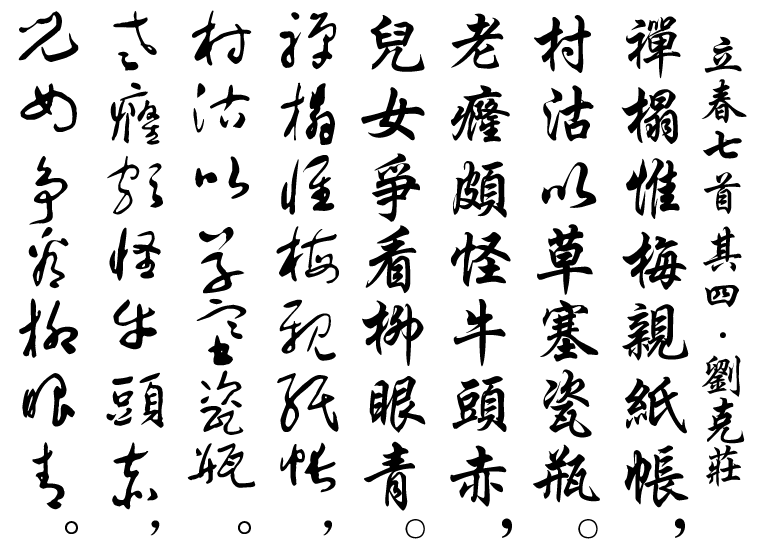 立春七首其四·劉克莊
禪榻惟梅親紙帳，
村沽以草塞瓷瓶。
老癃頗怪牛頭赤，
兒女爭看柳眼青。
禪榻惟梅親紙帳，
村沽以草塞瓷瓶。
老癃頗怪牛頭赤，
兒女爭看柳眼青。